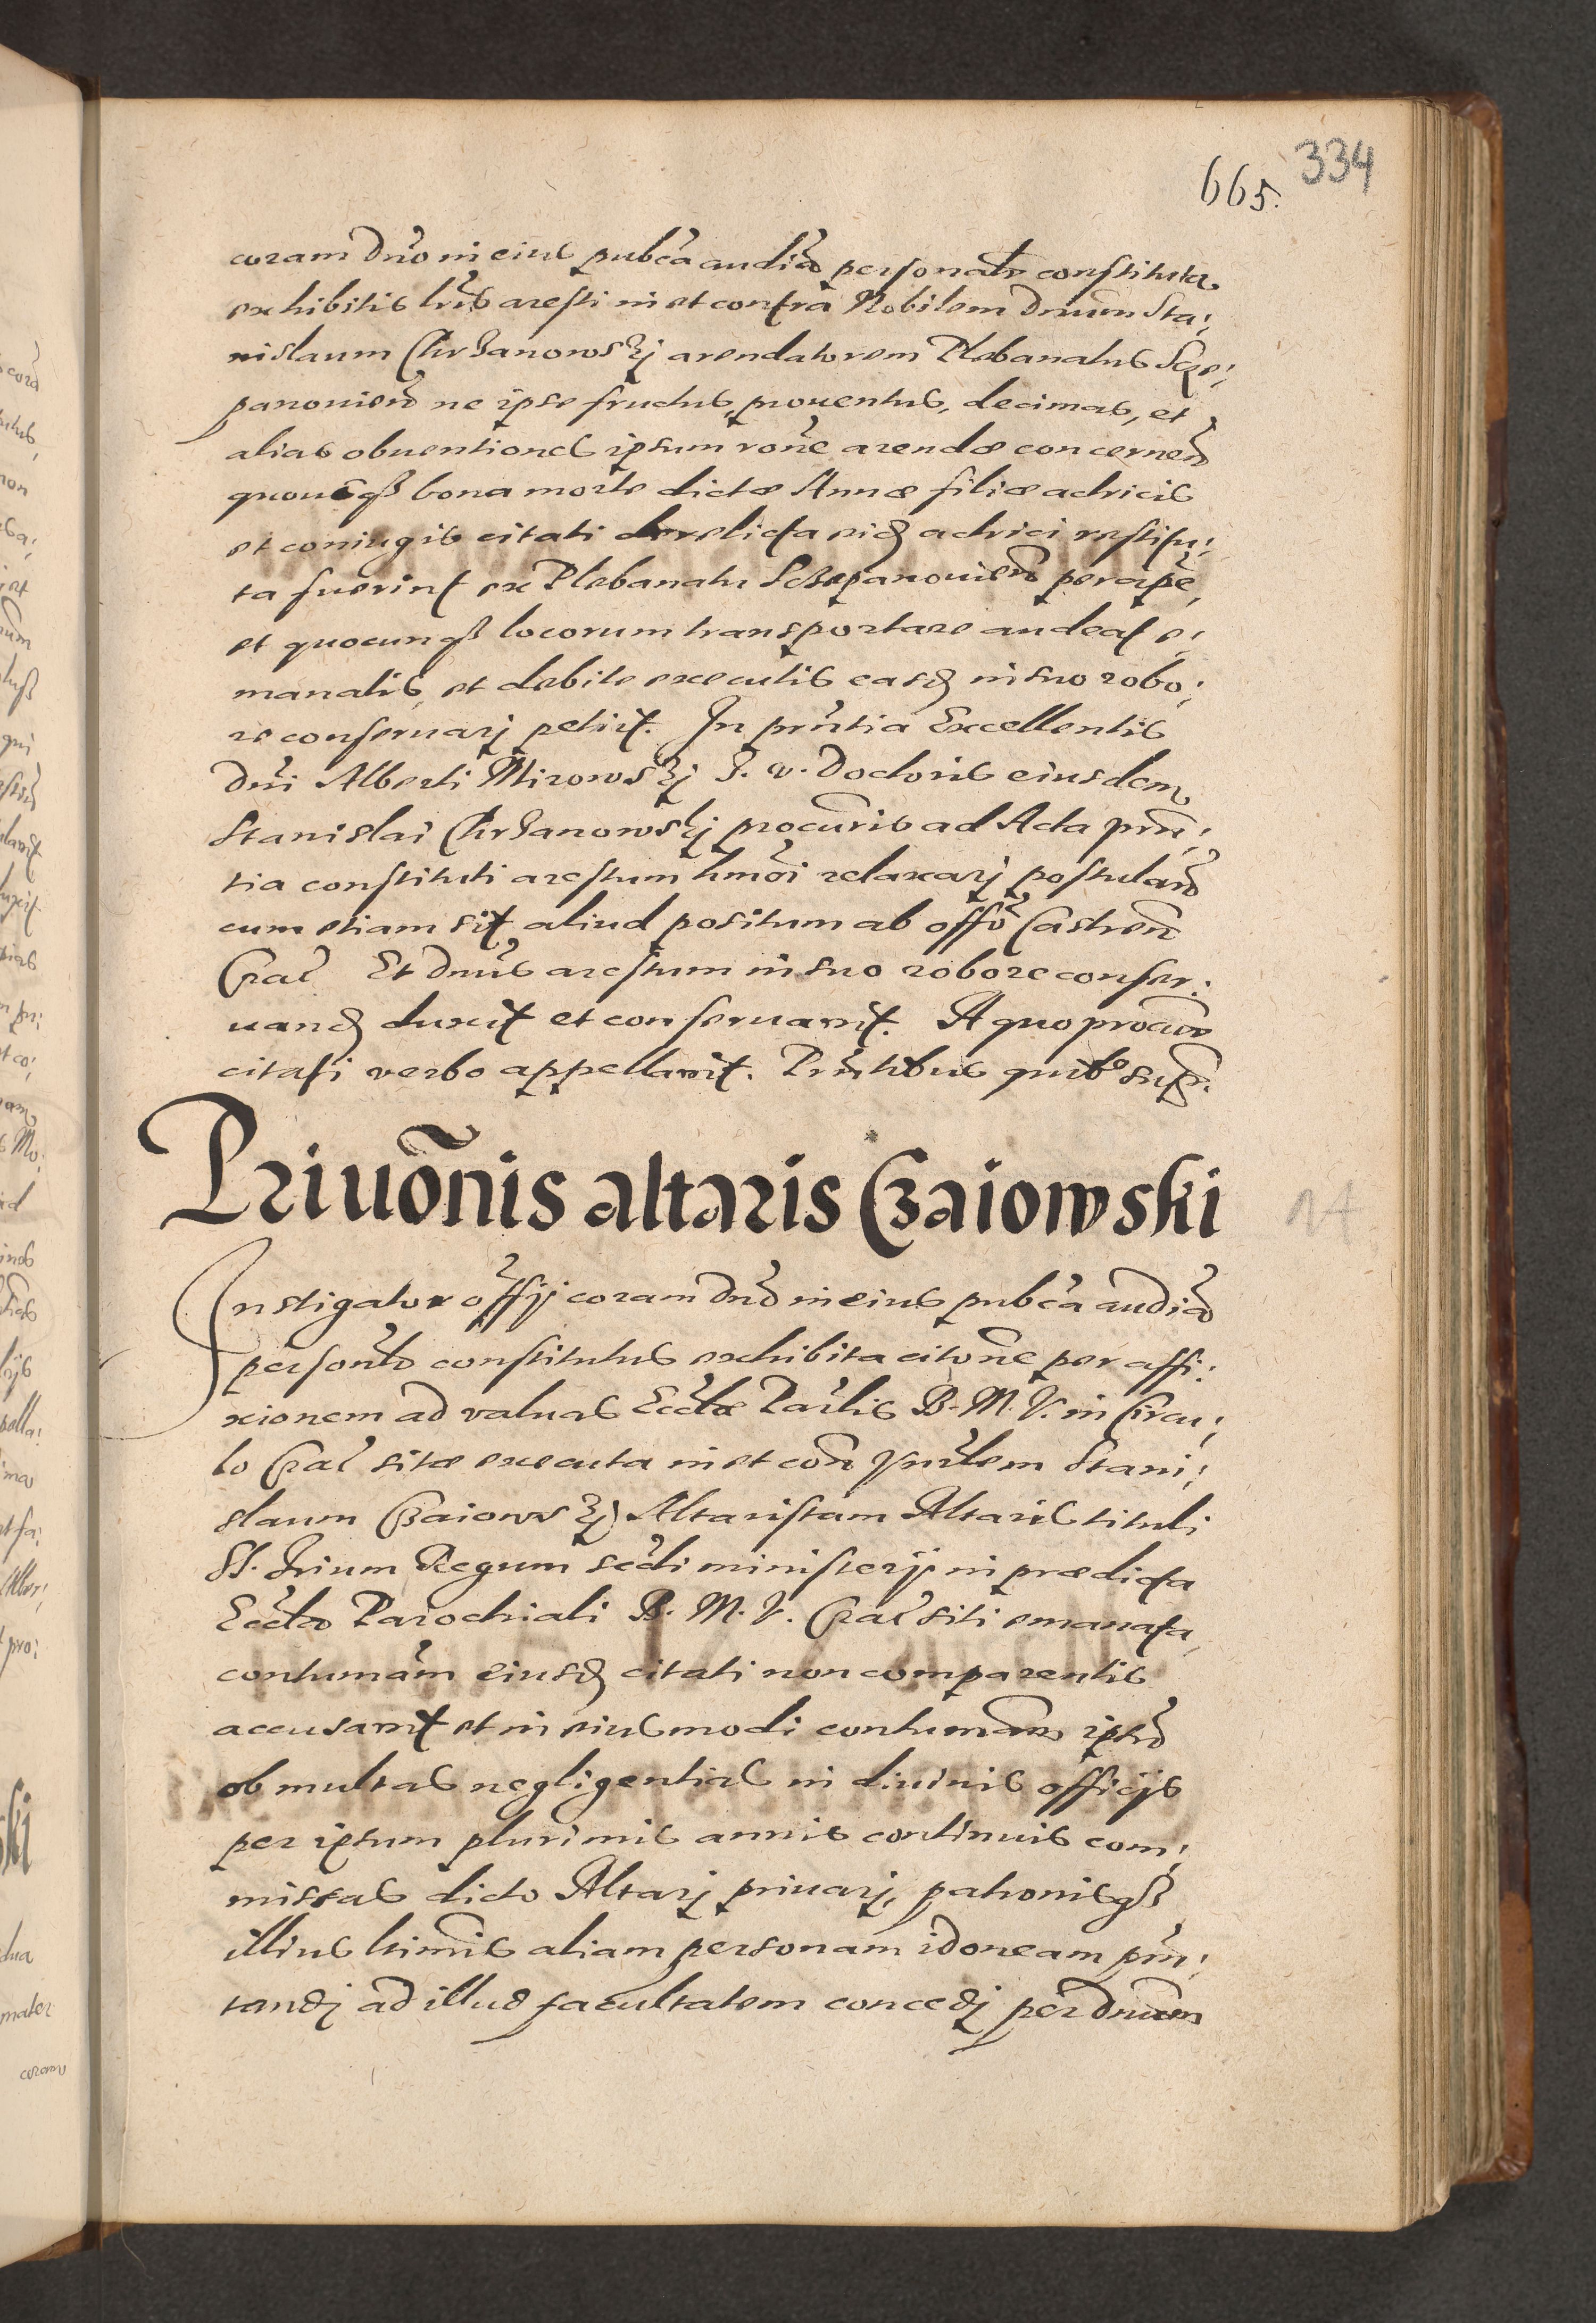 334
665.
coram Dño in eius pub͠ca audia͠ personal͠r constituta
exhibitis lr͠is aresti in et contra Nobilem Dnum͠ Sta¡
nislaum Chrzanowskj arendatorem Plebanatus Scze¡
panouien͠ ne ipse fructus, prouentus, decimas, et
alias obuentiones ipsum ro͠ne arendæ concernen͠
quousqß bona morte dictæ Annæ filiæ actricis
et coniugis citati derelicta eid͠ actrici restitu¡
ta fuerint ex Plebanatu Sczepanouien͠ percipe͠,
et quocunqß locorum transportare audeat e¡
manatis, et debite executis easd͠ in suo robo¡
re conseruarj petijt. In pr͠ntia Excellentis
Dn͠i Alberti Mirowskj J. V. Doctoris eiusdem
Stanislai Chrzanowskj procur͠is ad Acta pr͠n¡
tia constituti arestum hmo͠i relaxarj postulan͠
cum etiam sit aliud positum ab off͠o Castren͠
Crac͠ Et Dnus͠ arestum in suo robore conser¡
uand͠ duxit et conseruauit. A quo procur͠
citati verbo appellauit. Pr͠ntibus quib9 supr͠.
Priuo͠nis altaris Czaiowski
14
Instigator off͠ij coram Dn͠o in eius pub͠ca audia͠
personl͠r constitutus exhibita cito͠ne per affi¡
xionem ad valuas Eccl͠æ Par͠lis B. M. V. in Circu¡
lo Crac͠ sitæ executa in et con͠ Vnr͠lem Stani¡
slaum Czaiowskj Altaristam Altaris tituli
SS. Trium Regum sec͠di ministerij in prædicta
Eccl͠a Parochiali B. M. V. Crac͠ siti emanata,
contuma͠m eiusd͠ citati non comparentis
accusauit et in eiusmodi contuma͠m ipsu͠
ob multas negligentias in diuinis officijs
per ipsum plurimis annis continuis com¡
missas dicto Altarj priuarj, patronisqß
illius ltimis͠ aliam personam idoneam pr͠n¡
tandj ad illud facultatem concedj per Dnum͠